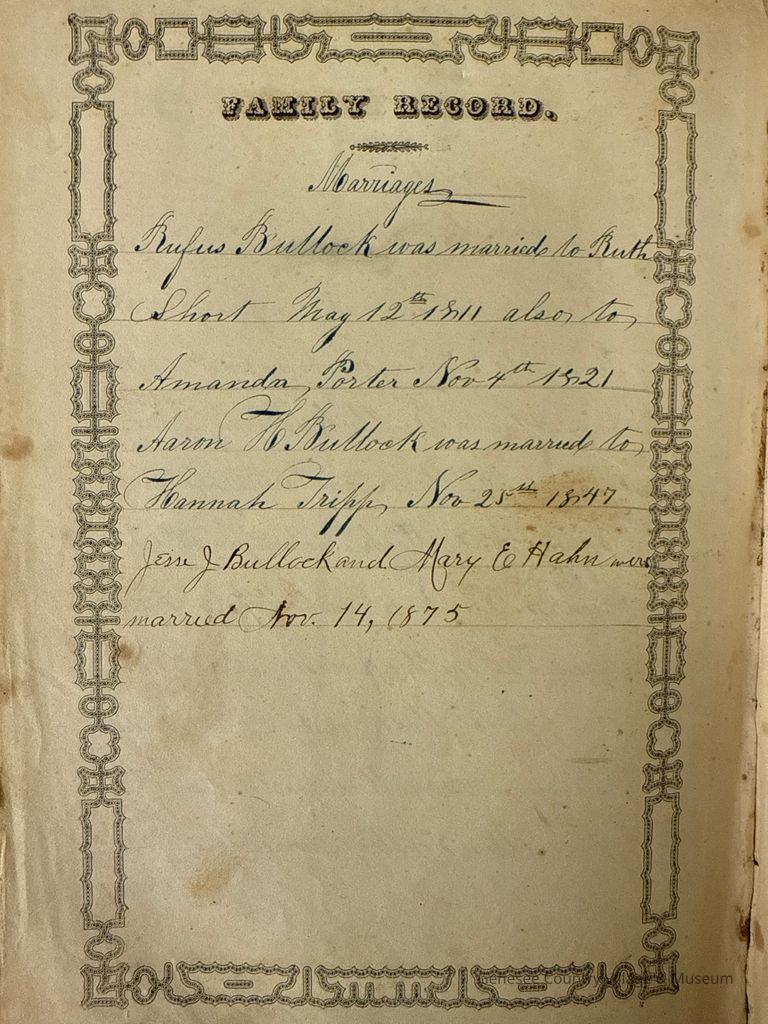 FAMILY RECORD.
Marriages
Rufus Bullock was married to Ruth
Short May 12th 1811 also to
Amanda Porter Nov 4th 1821
Aaron H Bullock was married to
Hannah Tripp Nov 25th 1847
Jesse J Bullock and Mary E Hahn were
married Nov. 14, 1875
Genesee Country Village & Museum